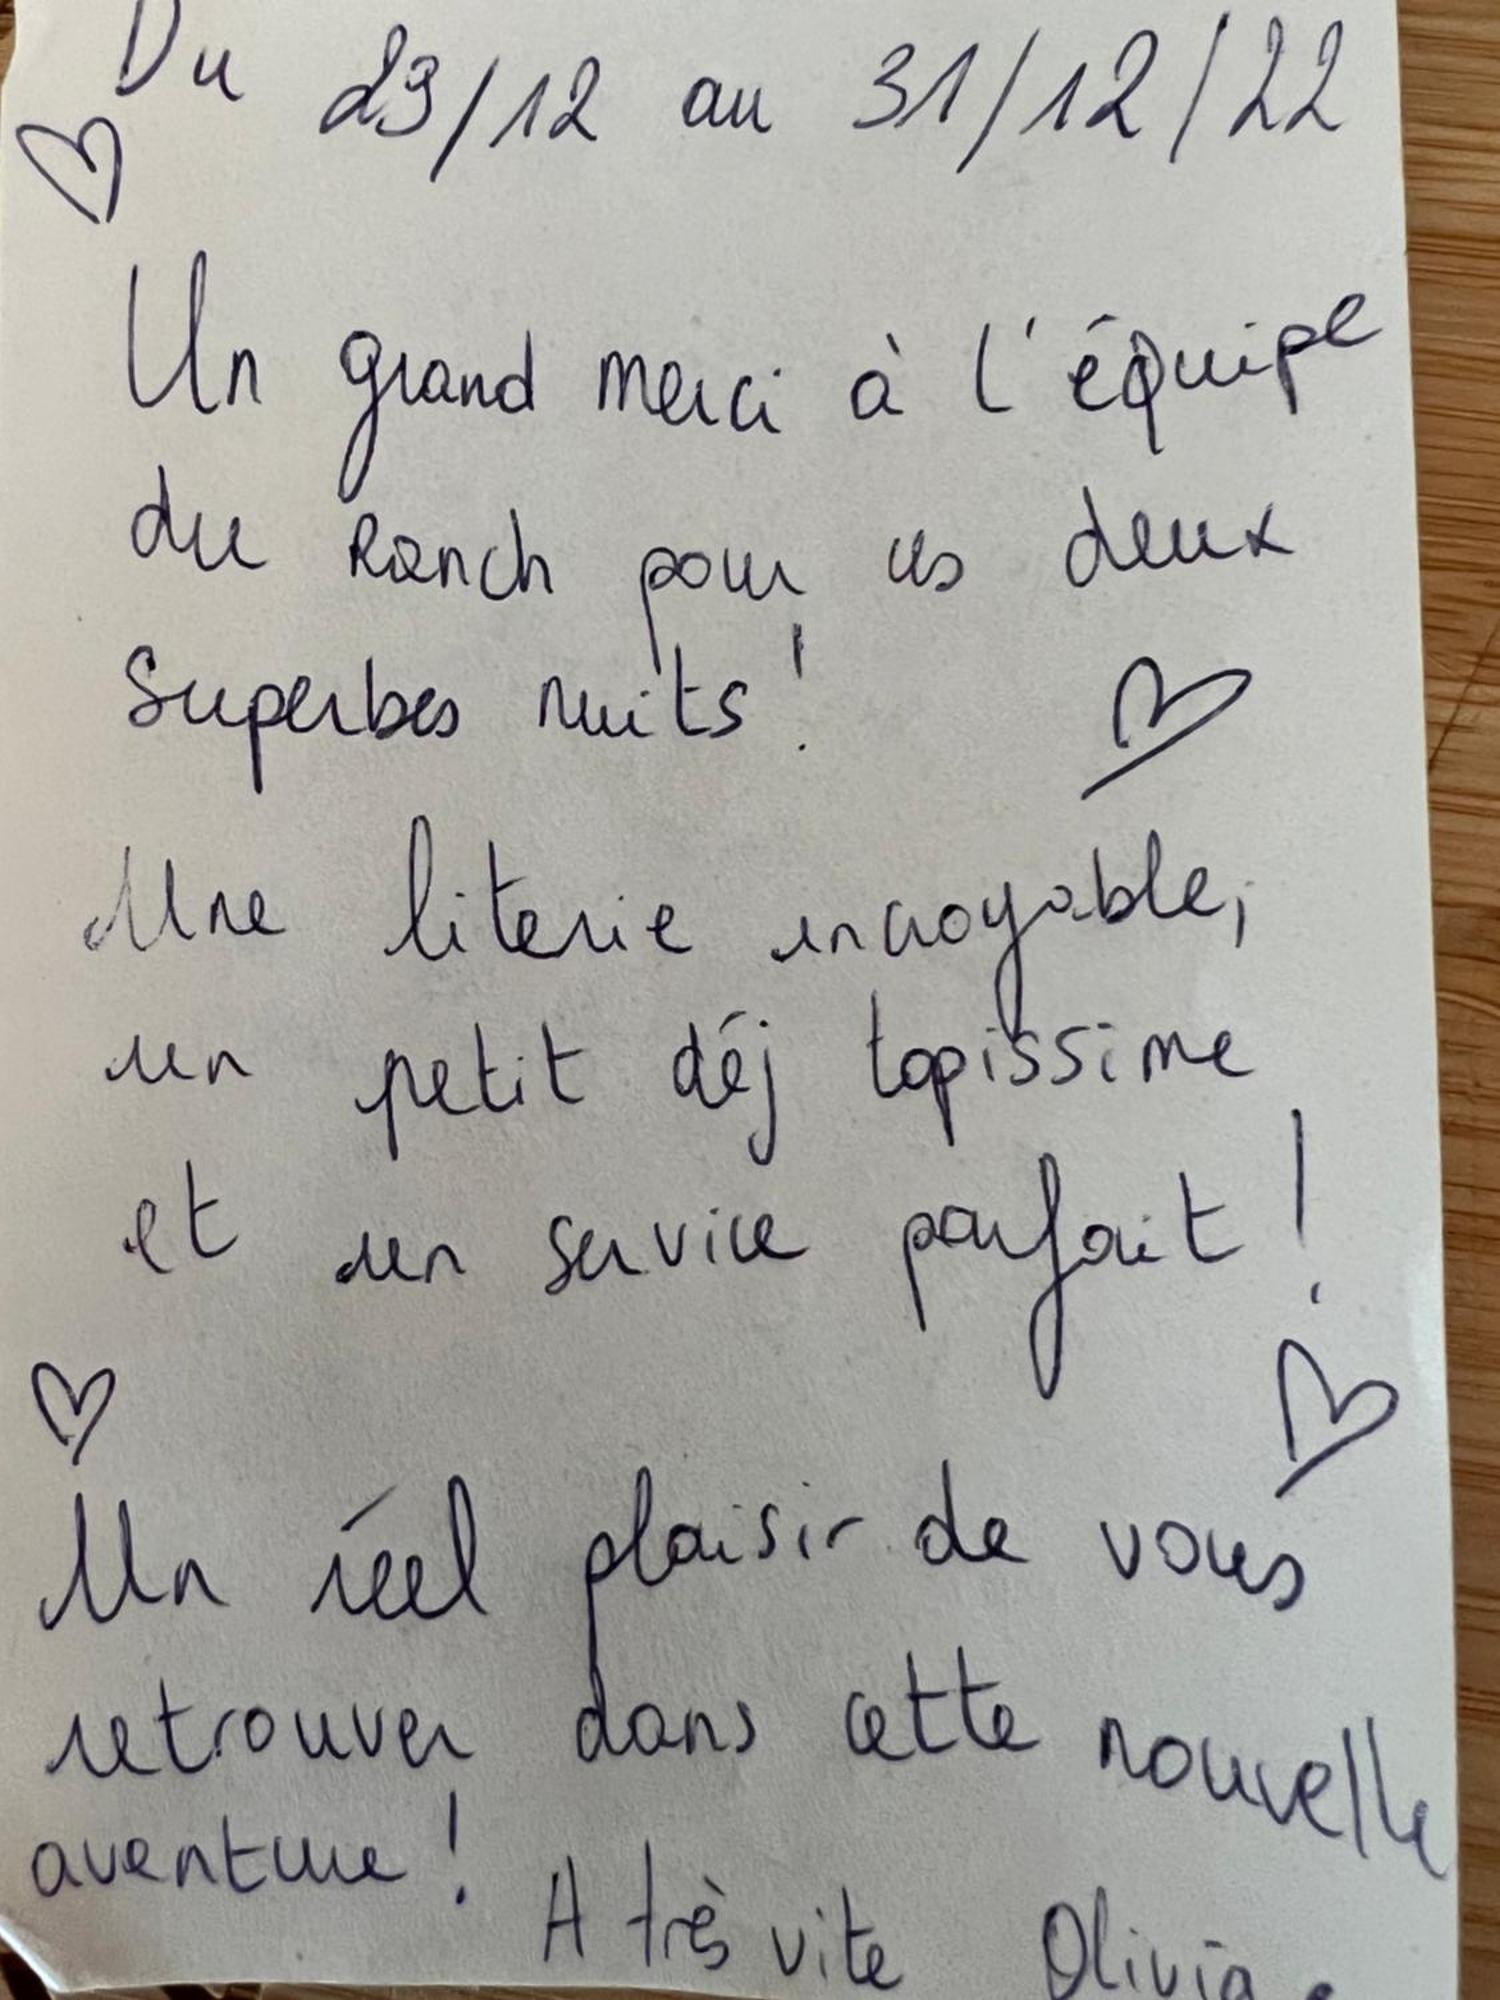 Du 29/12 au 31/12/22
Un grand merci à l'équipe
du Ranch pour ces deux
Superbes nuits !
Une literie incroyable,
un petit déj topissime
et un service parfait !
Un réel plaisir de vous
retrouver dans cette nouvelle
aventure !
A très vite Olivia.